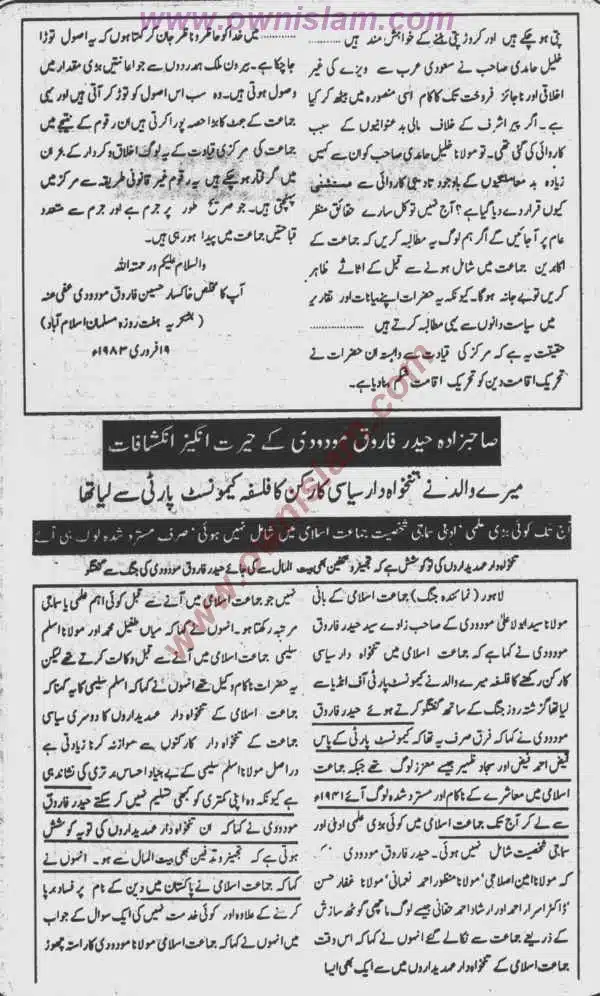 www.ownislam.com
پتی ہو چکے ہیں اور کروڑ پتی بننے کے خواہش مند ہیں ..............
خلیل حامدی صاحب نے سعودی عرب سے ویزے کی غیر
اخلاقی اور ناجائز فروخت تک کا کام اسی منصورہ میں بیٹھ کر کیا
ہے۔ اگر پیر اشرف کے خلاف مالی بدعنوانیوں کے سبب
کاروائی کی گئی تھی۔ تو مولانا خلیل حامدی صاحب کو ان سے کہیں
زیادہ بد معاملگیوں کے باوجود تادیبی کاروائی سے مستثنیٰ
کیوں قرار دے دیا گیا ہے؟ آج نہیں تو کل سارے حقائق منظر
عام پر آجائیں گے اگر ہم لوگ یہ مطالبہ کریں کہ جماعت کے
اکابرین جماعت میں شامل ہونے سے قبل کے اثاثے ظاہر
کریں تو بے جا نہ ہوگا۔ کیونکہ یہ حضرات اپنے بیانات اور تقاریر
میں سیاست دانوں سے یہی مطالبہ کرتے ہیں ..............
حقیقت یہ ہے کہ مرکز کی قیادت سے وابستہ ان حضرات نے
تحریک اقامت دین کو تحریک اقامت شکم بنا دیا ہے۔
.............. میں خدا کو حاضر و ناظر جان کر کہتا ہوں کہ یہ اصول توڑا
جا چکا ہے۔ بیرون ملک ہمدردوں سے جو اعانتیں بڑی مقدار میں
وصول ہوتی ہیں۔ وہ سب اس اصول کو توڑ کر آتی ہیں اور یہی
جماعت کے بجٹ کا بڑا حصہ پورا کرتی ہیں ان رقوم کے نتیجے میں
جماعت کی مرکزی قیادت کے یہ لوگ اخلاق و کردار کے بحران
میں گرفتار ہو چکے ہیں یہ رقوم غیر قانونی طریقہ سے مرکز میں
پہنچتی ہیں۔ جو صریح طور پر جرم ہے اور جرم سے متعدد
قباحتیں جماعت میں پیدا ہو رہی ہیں۔
والسلام علیکم ورحمتہ اللہ
آپ کا مخلص خاکسار حسین فاروق مودودی عفی عنہ
(بشکریہ ہفت روزہ مسلمان اسلام آباد)
۱۹ فروری ۱۹۸۳ء
صاحبزادہ حیدر فاروق مودودی کے حیرت انگیز انکشافات
میرے والد نے تنخواہ دار سیاسی کارکن کا فلسفہ کیمونسٹ پارٹی سے لیا تھا
آج تک کوئی بڑی علمی' ادبی سماجی شخصیت جماعت اسلامی میں شامل نہیں ہوئی' صرف مسترد شدہ لوگ ہی آئے
تنخواہ دار عہدیداروں کی تو کوشش ہے کہ تجہیز و تکفین بھی بیت المال سے کی جائے حیدر فاروق مودودی کی جنگ سے گفتگو
لاہور (نمائندہ جنگ) جماعت اسلامی کے بانی
مولانا سید ابوالاعلیٰ مودودی کے صاحب زادے سید حیدر فاروق
مودودی نے کہا ہے کہ جماعت اسلامی میں تنخواہ دار سیاسی
کارکن رکھنے کا فلسفہ میرے والد نے کیمونسٹ پارٹی آف انڈیا سے
لیا تھا گزشتہ روز جنگ کے ساتھ گفتگو کرتے ہوئے حیدر فاروق
مودودی نے کہا کہ فرق صرف یہ تھا کہ کیمونسٹ پارٹی کے پاس
فیض احمد فیض اور سجاد ظہیر جیسے معزز لوگ تھے جبکہ جماعت
اسلامی میں معاشرے کے ناکام اور مسترد شدہ لوگ آئے ۱۹۳۱ء
سے لے کر آج تک جماعت اسلامی میں کوئی بڑی علمی ادبی اور
سماجی شخصیت شامل نہیں ہوئی۔ حیدر فاروق مودودی
کہ مولانا امین اصلاحی' مولانا منظور احمد نعمانی' مولانا غفار حسن
ڈاکٹر اسرار احمد اور ارشاد احمد حقانی جیسے لوگ ماچھی گوٹھ سازش
کے ذریعے جماعت سے نکالے گئے انہوں نے کہا کہ اس وقت
جماعت اسلامی کے تنخواہ دار عہدیداروں میں سے ایک بھی ایسا
نہیں جو جماعت اسلامی میں آنے سے قبل کوئی اہم علمی یا سماجی
مرتبہ رکھتا ہو۔ انہوں نے کہا کہ میاں طفیل محمد اور مولانا اسلم
سلیمی جماعت اسلامی میں آنے سے قبل وکالت کرتے تھے لیکن
یہ حضرات ناکام وکیل تھے انہوں نے کہا کہ اسلم سلیمی کا یہ کہنا کہ
جماعت اسلامی کے تنخواہ دار عہدیداروں کا دوسری سیاسی
جماعت کے تنخواہ دار کارکنوں سے موازنہ کرنا زیادتی ہے
دراصل مولانا اسلم سلیمی کے بے بنیاد احساس برتری کی نشاندہی
ہے کیونکہ وہ اپنی کمتری کو کبھی تسلیم نہیں کر سکتے حیدر فاروق
مودودی نے کہا کہ ان تنخواہ دار عہدیداروں کی تو یہ کوشش
ہوتی ہے کہ تجہیز و تدفین بھی بیت المال سے ہو۔ انہوں نے
کہا کہ جماعت اسلامی نے پاکستان میں دین کے نام پر فساد برپا
کرنے کے علاوہ اور کوئی خدمت نہیں کی ایک سوال کے جواب
میں انہوں نے کہا کہ جماعت اسلامی مولانا مودودی کا راستہ چھوڑ
www.ownislam.com